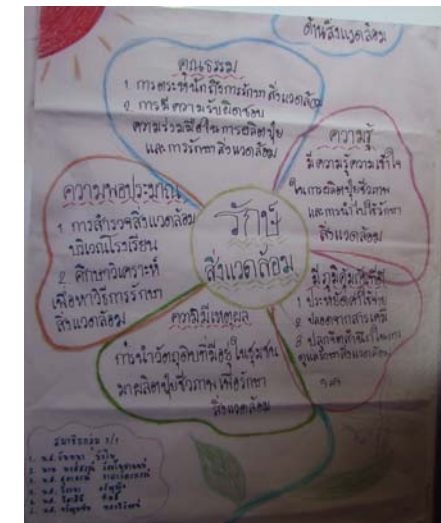 ด้านสิ่งแวดล้อม
คุณธรรม
1. การตระหนักถึงการรักษาสิ่งแวดล้อม
2. การมีความรับผิดชอบ
ความร่วมมือในการผลิตปุ๋ย
และการรักษาสิ่งแวดล้อม
ความรู้
มีความรู้ความเข้าใจ
ในการผลิตปุ๋ยชีวภาพ
และการนำไปใช้รักษา
สิ่งแวดล้อม
ความพอประมาณ
1. การสำรวจสิ่งแวดล้อม
บริเวณโรงเรียน
2. ศึกษาวิเคราะห์
เพื่อหาวิธีการรักษา
สิ่งแวดล้อม
รักษ์
สิ่งแวดล้อม
มีภูมิคุ้มกันที่ดี
1 ประหยัดค่าใช้จ่าย
2 ปลอดจากสารเคมี
3 ปลูกจิตสำนึกในการ
ดูแลรักษาสิ่งแวดล้อม
ความมีเหตุผล
การนำวัตถุดิบที่มีอยู่ในชุมชน
มาผลิตปุ๋ยชีวภาพเพื่อรักษา
สิ่งแวดล้อม
สมาชิกกลุ่ม
1. นส.
2. นาย
3. นส.
4. นส.
5. นส.
6. นส.